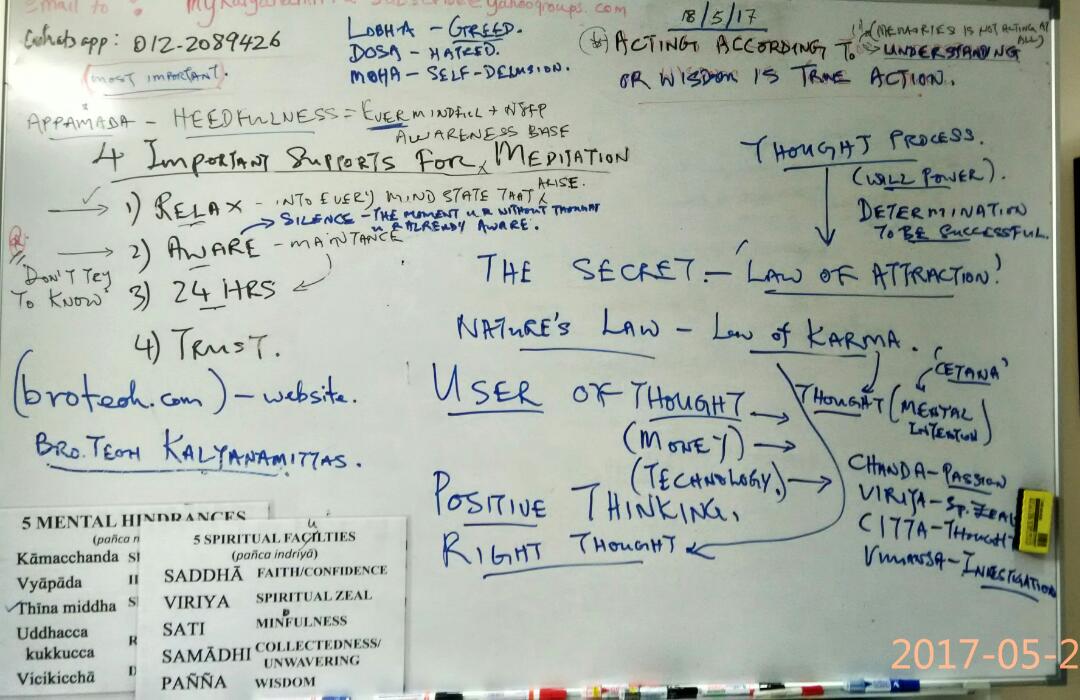 Email to: subscribe@yahoogroups.com
Whatsapp: 012-2089426
(MOST IMPORTANT).
LOBHA - GREED.
DOSA - HATRED.
MOHA - SELF-DELUSION.
18/5/17
ACTING ACCORDING TO UNDERSTANDING
(MEMORIES IS NOT ACTING AT ALL)
OR WISDOM IS TRUE ACTION.
APPAMADA - HEEDFULNESS = EVER MINDFUL +
AWARENESS BASE
4 IMPORTANT SUPPORTS FOR MEDITATION
1) RELAX - INTO EVERY MIND STATE THAT ARISE.
SILENCE - THE MOMENT U R WITHOUT THOUGHT
U R ALREADY AWARE.
2) AWARE - MAINTANCE
DON'T TRY
TO KNOW
3) 24 HRS
4) TRUST.
(broteoh.com) - website.
BRO. TEOH KALYANAMITTAS.
THOUGHT PROCESS.
(WILL POWER).
DETERMINATION
TO BE SUCCESSFUL.
THE SECRET. - 'LAW OF ATTRACTION'
NATURE'S LAW - LAW OF KARMA.
'CETANA'
USER OF THOUGHT
THOUGHT (MENTAL
INTENTION)
(MONEY)
(TECHNOLOGY.)
POSITIVE THINKING.
RIGHT THOUGHT
CHANDA - PASSION
VIRIYA - SP. ZEAL
CITTA - THOUGHT
VIMANSA - INVESTIGATION
5 MENTAL HINDRANCES
(pañca n
Kāmacchanda
Vyāpāda
Thīna middha
Uddhacca
kukkucca
Vicikicchā
5 SPIRITUAL FACILTIES
u
(pañca indriyā)
SADDHĀ FAITH/CONFIDENCE
VIRIYA SPIRITUAL ZEAL
SATI MINFULNESS
D
SAMĀDHI COLLECTEDNESS/
UNWAVERING
PAÑÑA WISDOM
2017-05-2